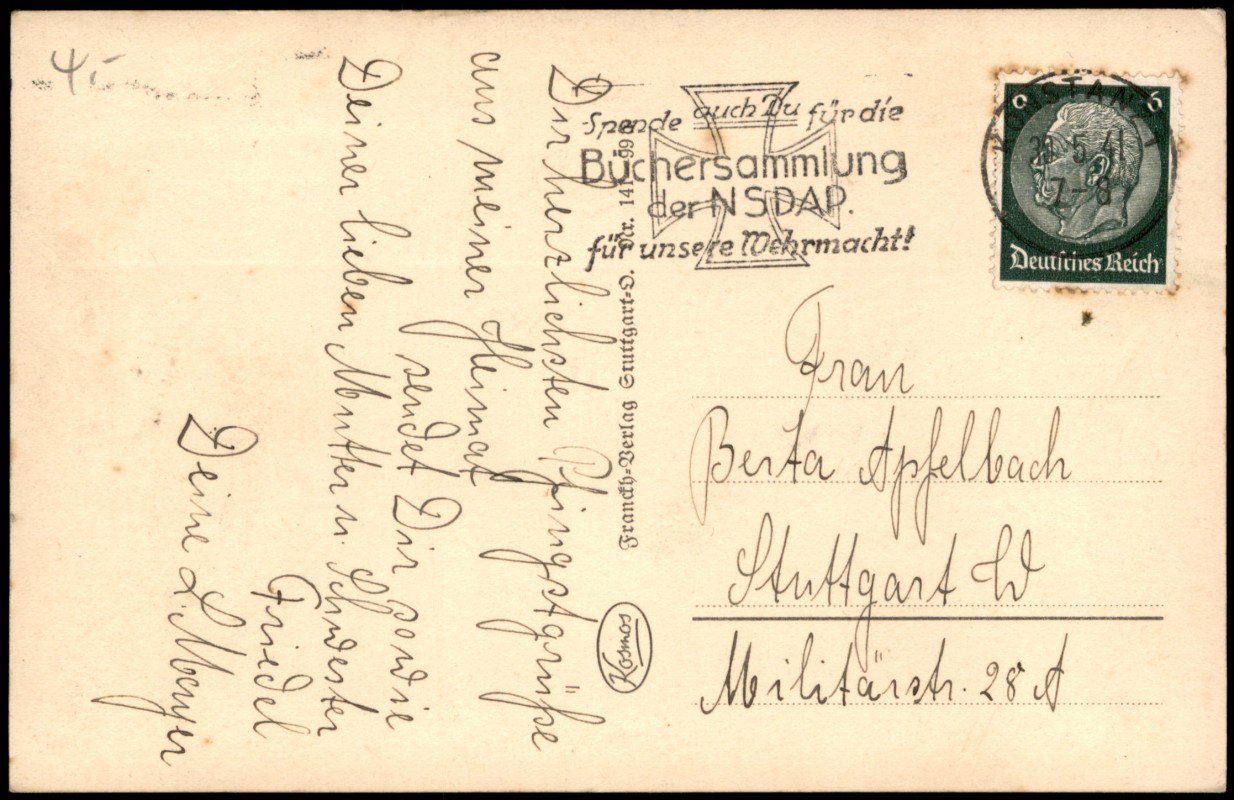 4,-
Dir herzlichsten Pfingstgrüße
aus meiner Heimat
sendet Dir sowie
Deiner lieben Mutter u. Schwester
Friedel
Deine L. Menger
Franckh-Verlag Stuttgart-O. Nr. 141 99
Kosmos
Spende auch Du für die
Büchersammlung
der NSDAP.
für unsere Wehrmacht!
5. 41
7-8
6 6
Deutsches Reich
Frau
Berta Apfelbach
Stuttgart W
Militärstr. 28 A